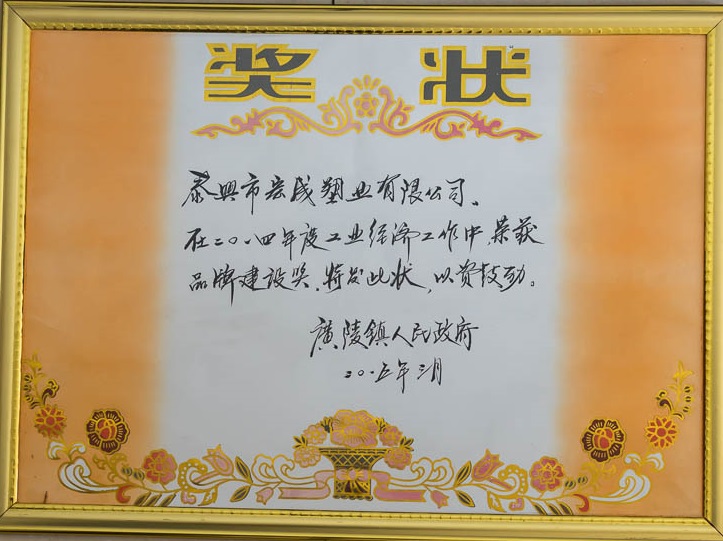 奖状
泰興市宏成塑业有限公司、
在二〇一四年度工业经济工作中,荣获
品牌建设奖,特发此状,以资鼓励。
廣陵镇人民政府
二〇一五年三月